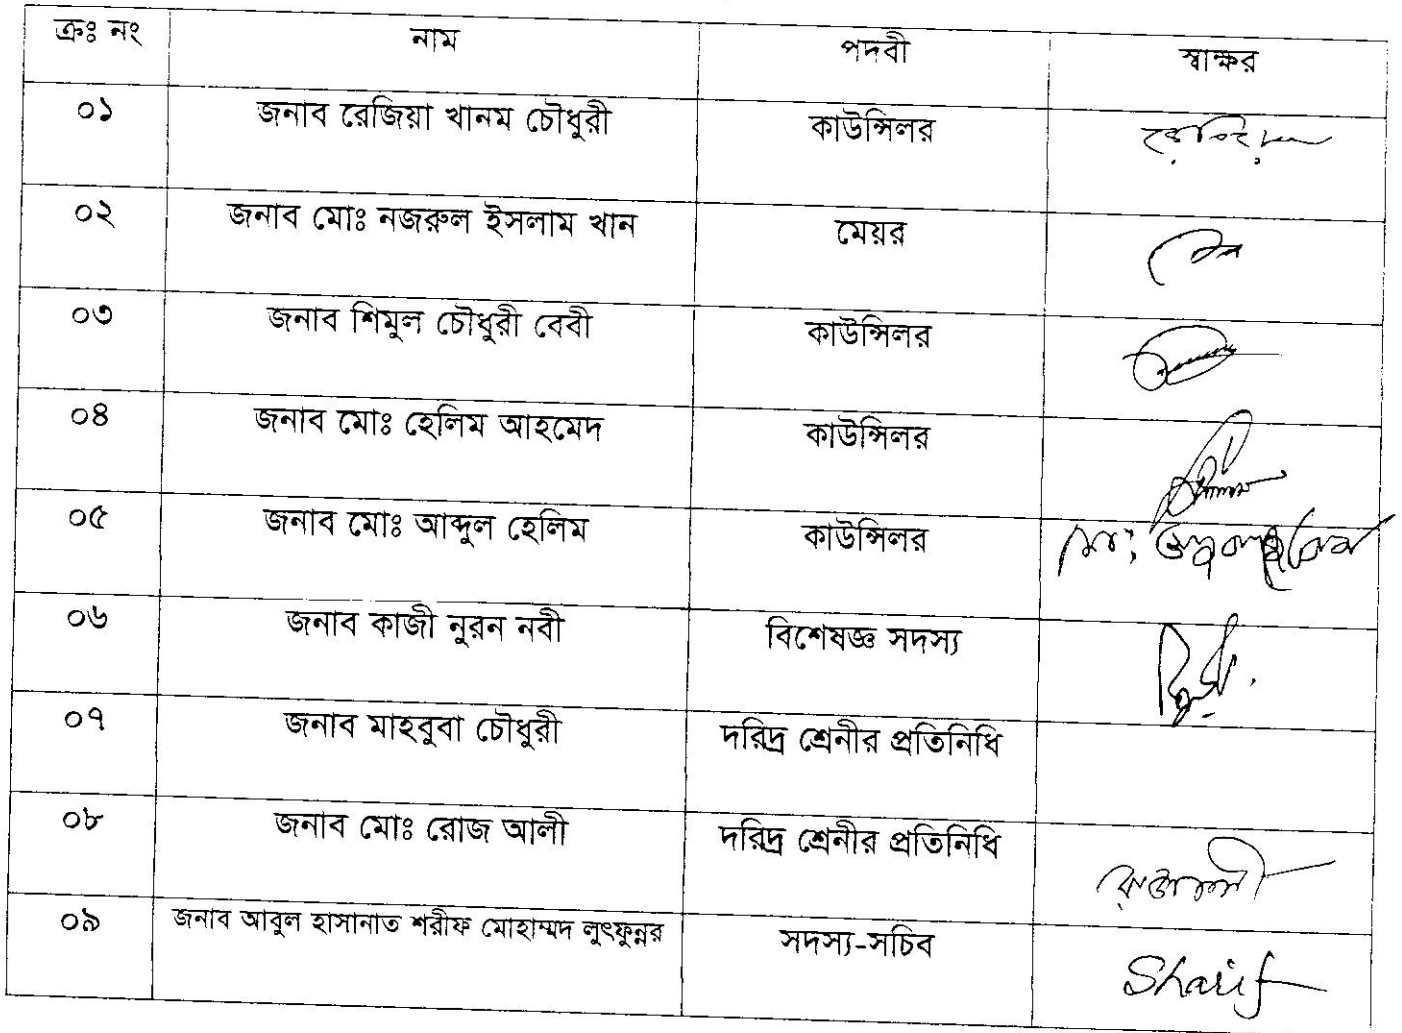 ক্রঃ নং নাম পদবী স্বাক্ষর
০১ জনাব রেজিয়া খানম চৌধুরী কাউন্সিলর
০২ জনাব মোঃ নজরুল ইসলাম খান মেয়র
০৩ জনাব শিমুল চৌধুরী বেবী কাউন্সিলর
০৪ জনাব মোঃ হেলিম আহমেদ কাউন্সিলর
০৫ জনাব মোঃ আব্দুল হেলিম কাউন্সিলর
০৬ জনাব কাজী নুরন নবী বিশেষজ্ঞ সদস্য
০৭ জনাব মাহবুবা চৌধুরী দরিদ্র শ্রেনীর প্রতিনিধি
০৮ জনাব মোঃ রোজ আলী দরিদ্র শ্রেনীর প্রতিনিধি
০৯ জনাব আবুল হাসানাত শরীফ মোহাম্মদ লুৎফুন্নর সদস্য-সচিব Sharif